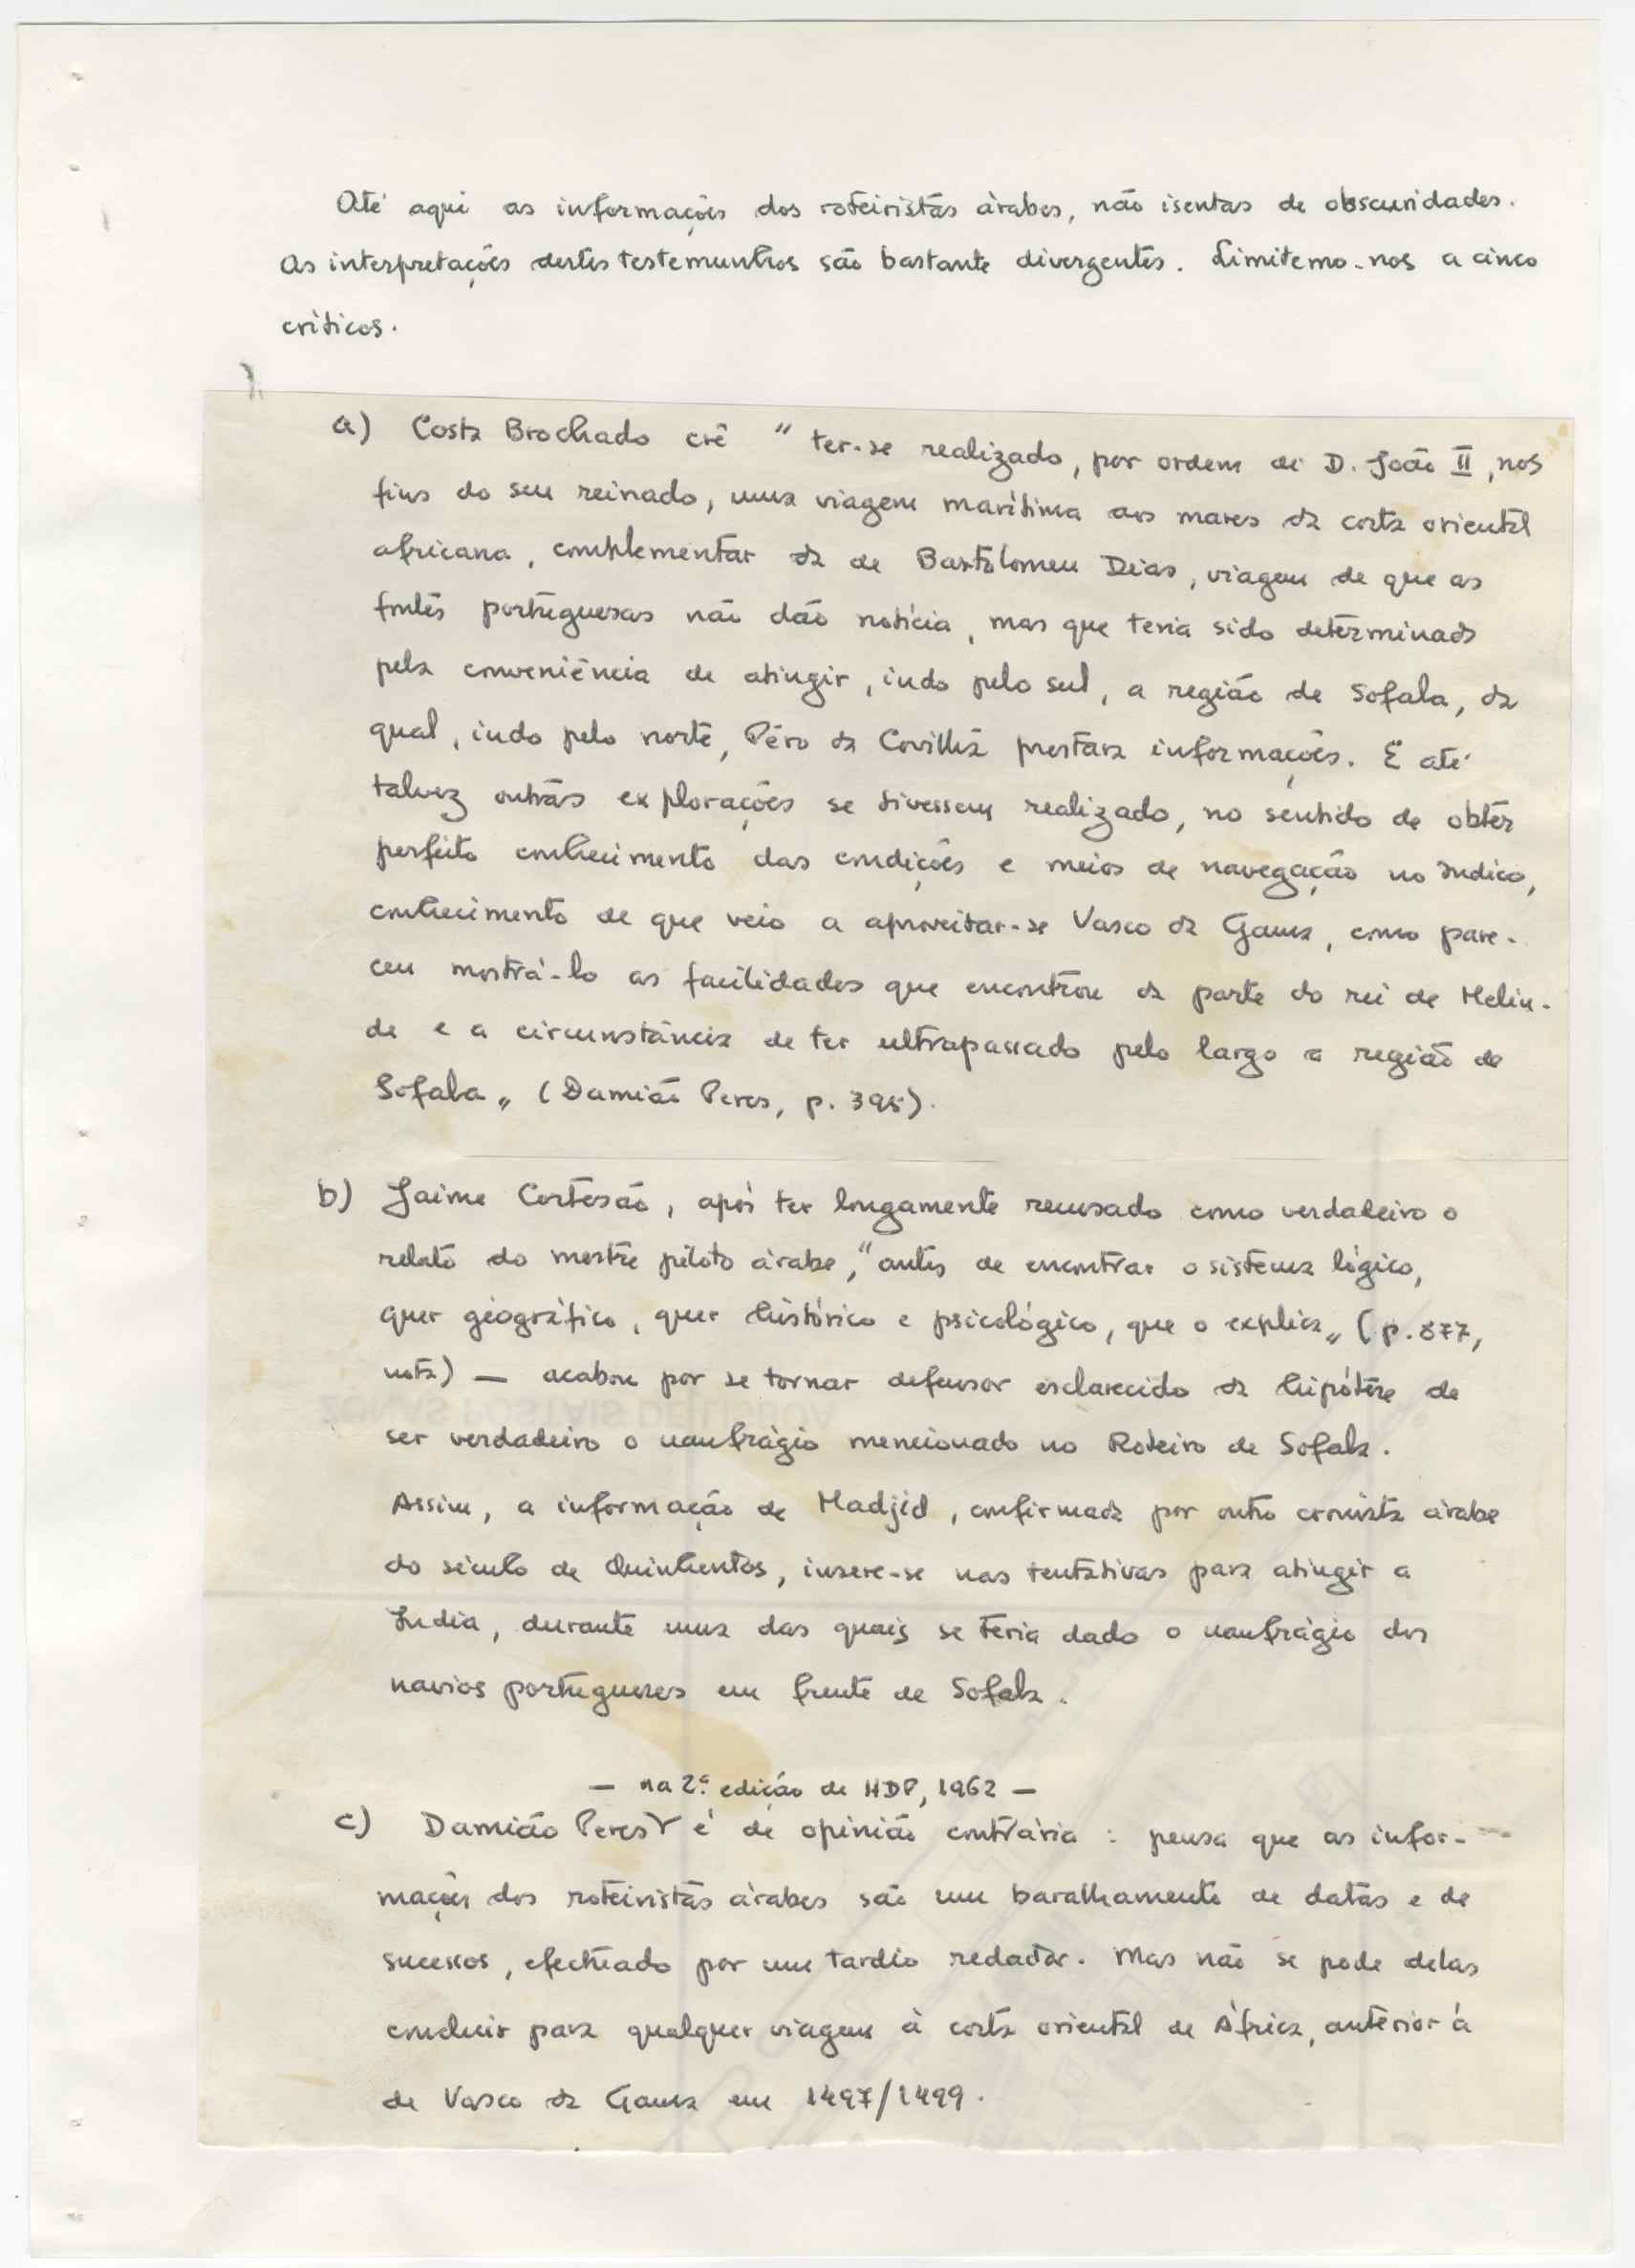 Até aqui as informações dos roteiristas árabes, não isentas de obscuridades.
As interpretações destes testemunhos são bastante divergentes. Limitemo-nos a cinco
críticos.
a) Costa Brochado crê "ter-se realizado, por ordem de D. João II, nos
fins do seu reinado, uma viagem marítima aos mares da costa oriental
africana, complementar da de Bartolomeu Dias, viagem de que as
fontes portuguesas não dão notícia, mas que teria sido determinada
pela conveniência de atingir, indo pelo sul, a região de Sofala, da
qual, indo pelo norte, Pêro da Covilhã prestara informações. E até
talvez outras explorações se tivessem realizado, no sentido de obter
perfeito conhecimento das condições e meios de navegação no Índico,
conhecimento de que veio a aproveitar-se Vasco da Gama, como pare-
ceu mostrá-lo as facilidades que encontrou da parte do rei de Melin-
de e a circunstância de ter ultrapassado pelo largo a região de
Sofala" (Damião Peres, p. 395).
b) Jaime Cortesão, após ter longamente recusado como verdadeiro o
relato do mestre piloto árabe, "antes de encontrar o sistema lógico,
quer geográfico, quer histórico e psicológico, que o explica" (p. 877,
nota) — acabou por se tornar defensor esclarecido da hipótese de
ser verdadeiro o naufrágio mencionado no Roteiro de Sofala.
Assim, a informação de Madjid, confirmada por outro cronista árabe
do século de Quinhentos, insere-se nas tentativas para atingir a
Índia, durante uma das quais se teria dado o naufrágio dos
navios portugueses em frente de Sofala.
— na 2ª edição de HDP, 1962 —
c) Damião Peres é de opinião contrária: pensa que as infor-
mações dos roteiristas árabes são um baralhamento de datas e de
sucessos, efectuado por um tardio redactor. Mas não se pode delas
concluir para qualquer viagem à costa oriental de África, anterior à
de Vasco da Gama em 1497/1499.